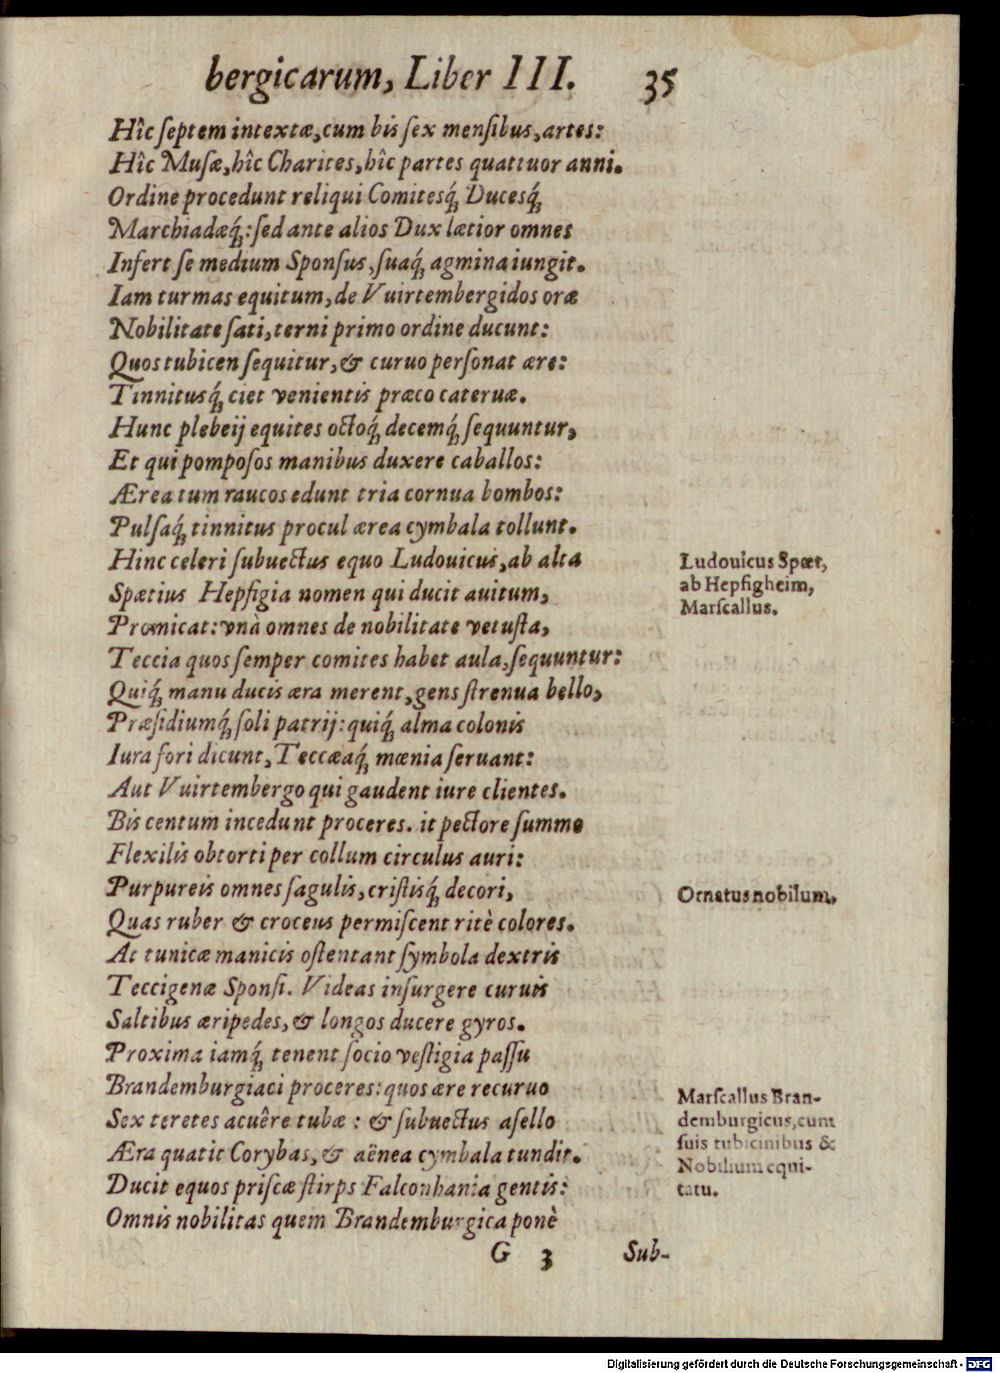 bergicarum, Liber III. 35
Hîc ſeptem intextæ, cum bis ſex menſibus, artes:
Hîc Muſæ, hîc Charites, hîc partes quattuor anni.
Ordine procedunt reliqui Comitesq́ꝫ Ducesq́ꝫ
Marchiadæq́ꝫ: ſed ante alios Dux lætior omnes
Infert ſe medium Sponſus, ſuaq́ꝫ agmina iungit.
Iam turmas equitum, de Vuirtembergidos oræ
Nobilitate ſati, terni primo ordine ducunt:
Quos tubicen ſequitur, & curuo perſonat ære:
Tinnitusq́ꝫ ciet venientis præco cateruæ.
Hunc plebeij equites octoq́ꝫ decemq́ꝫ ſequuntur,
Et qui pompoſos manibus duxere caballos:
Ærea tum raucos edunt tria cornua bombos:
Pulſaq́ꝫ tinnitus procul ærea cymbala tollunt.
Hinc celeri ſubuectus equo Ludouicus, ab alta
Ludouicus Spæt,
Spætius Hepſigia nomen qui ducit auitum,
ab Hepſigheim,
Marſcallus.
Promicat: vnà omnes de nobilitate vetuſta,
Teccia quos ſemper comites habet aula, ſequuntur:
Quiq́ꝫ manu ducis æra merent, gens ſtrenua bello,
Præſidiumq́ꝫ ſoli patrij: quiq́ꝫ alma colonis
Iura fori dicunt, Teccæaq́ꝫ mœnia ſeruant:
Aut Vuirtembergo qui gaudent iure clientes.
Bis centum incedunt proceres. it pectore ſummo
Flexilis obtorti per collum circulus auri:
Purpureis omnes ſagulis, criſtisq́ꝫ decori,
Ornatus nobilium.
Quas ruber & croceus permiſcent ritè colores.
At tunicæ manicis oſtentant ſymbola dextris
Teccigenæ Sponſi. Videas inſurgere curuis
Saltibus æripedes, & longos ducere gyros.
Proxima iamq́ꝫ tenent ſocio veſtigia paſſu
Brandemburgiaci proceres: quos ære recuruo
Marſcallus Bran-
Sex teretes acuêre tubæ: & ſubuectus aſello
demburgicus, cum
Æra quatit Corybas, & aënea cymbala tundit.
ſuis tubicinibus &
Nobilium equi-
Ducit equos priſcæ ſtirps Falconhania gentis:
tatu.
Omnis nobilitas quem Brandemburgica ponè
G 3 Sub-
Digitalisierung gefördert durch die Deutsche Forschungsgemeinschaft - DFG